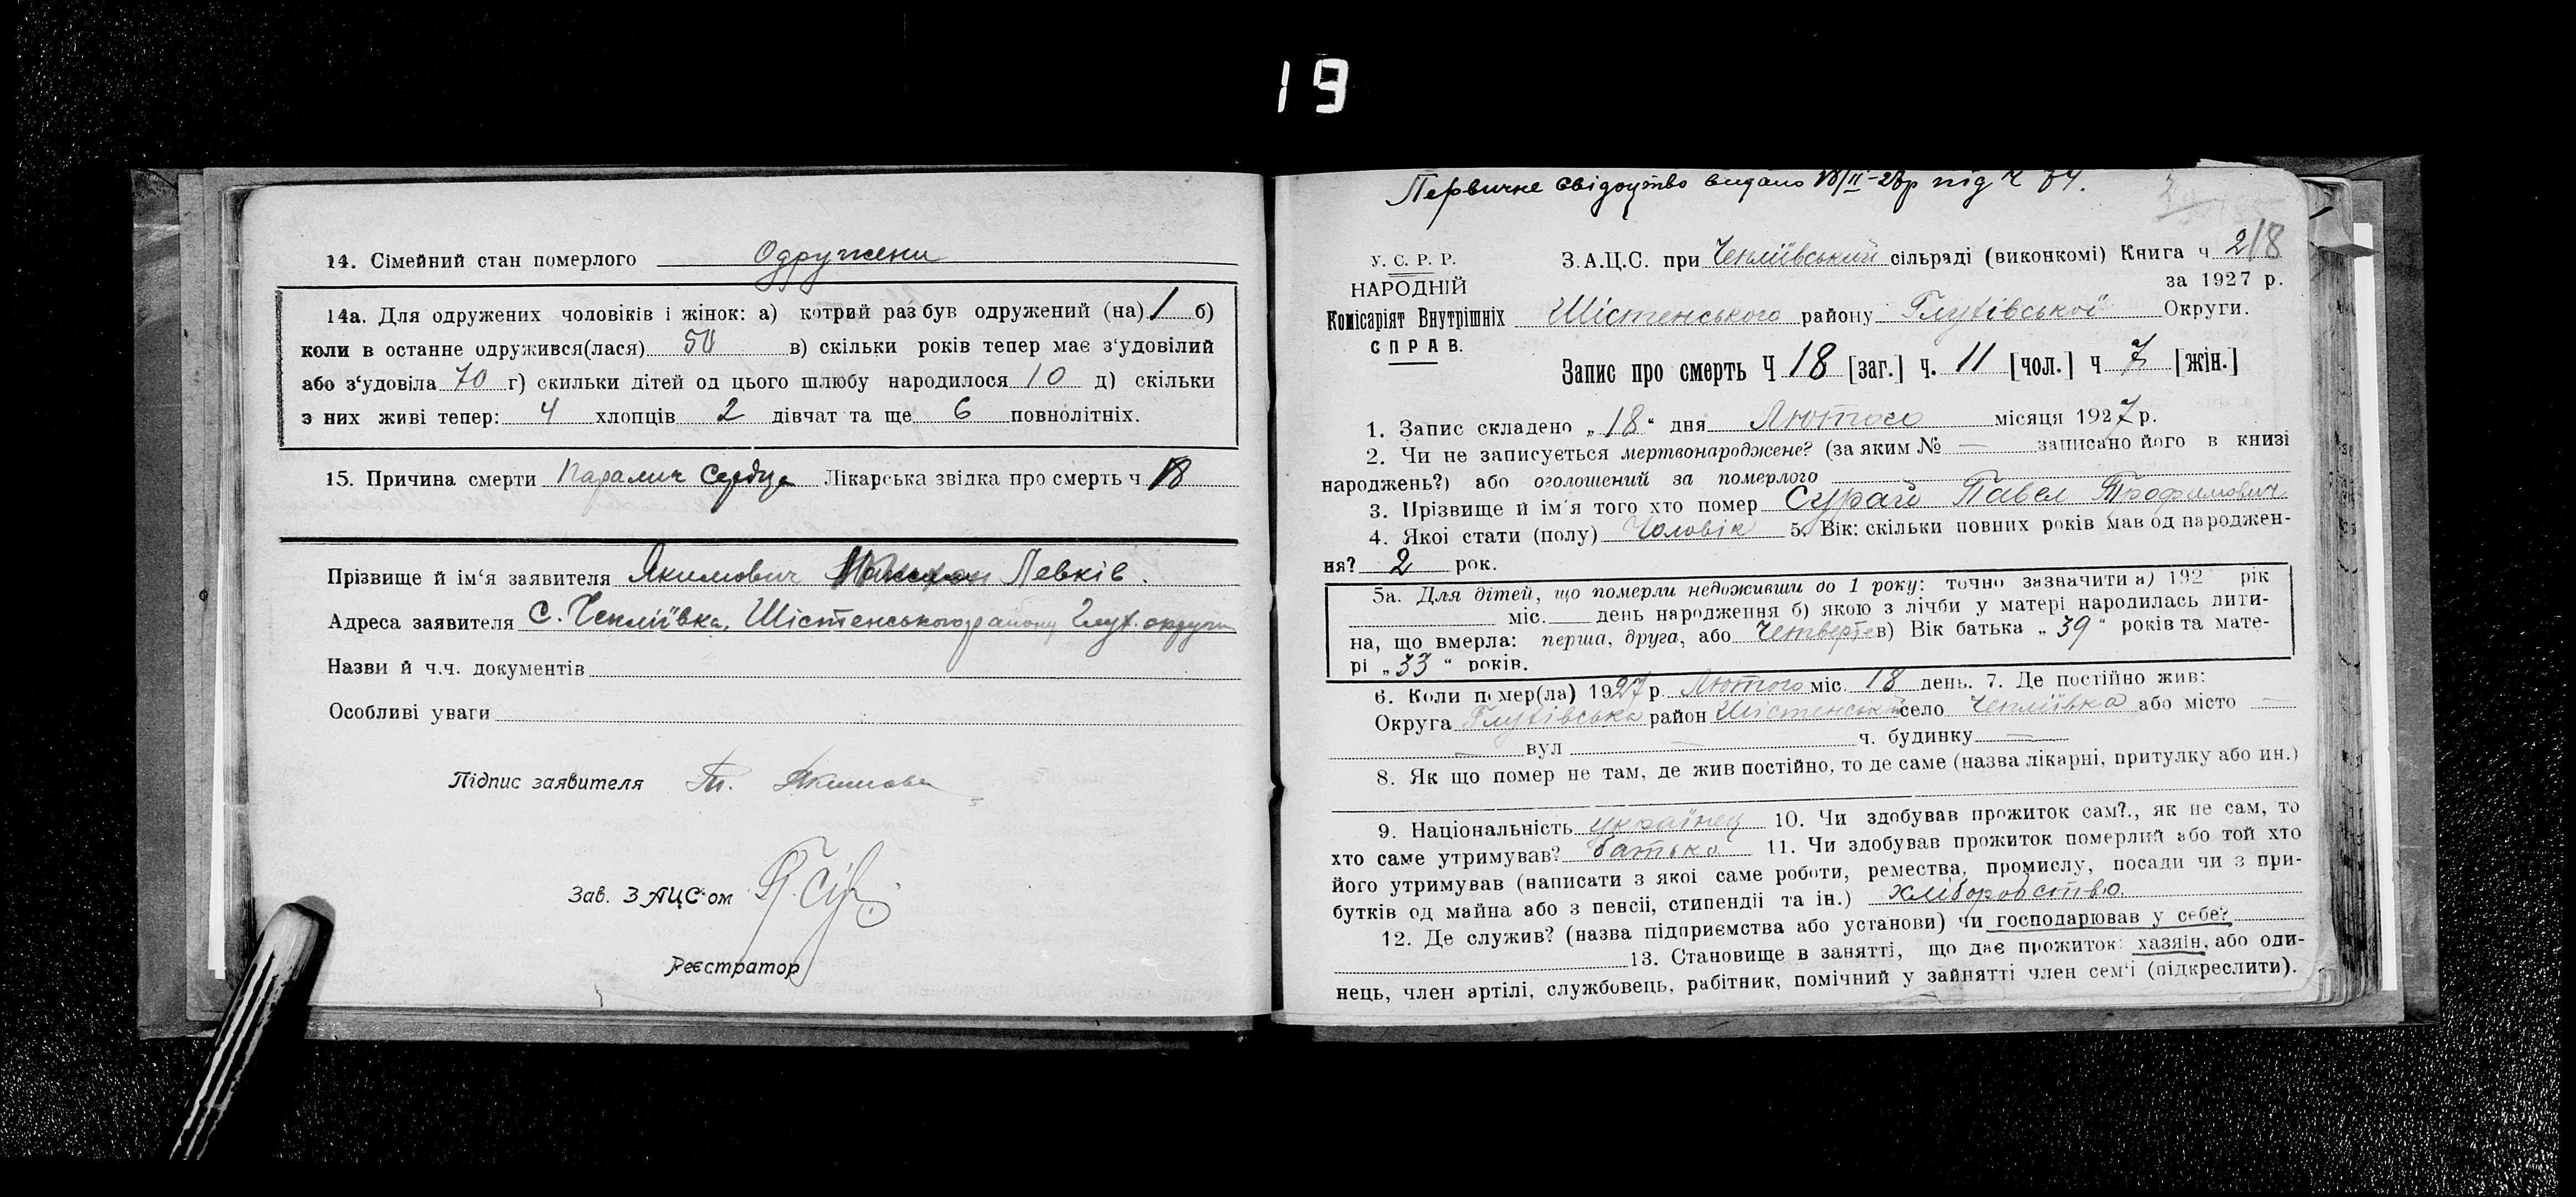 19
14. Сімейний стан померлого Одружени
14а. Для одружених чоловіків і жінок: а) котрий раз був одружений (на) 1 б)
коли в останне одружився(лася) 50 в) скільки років тепер має з'удовілий
або з'удовіла 70 г) скильки дітей од цього шлюбу народилося 10 д) скільки
з них живі тепер: 4 хлопців 2 дівчат та ще 6 повнолітніх.
15. Причина смерти Паралич Сердця Лікарська звідка про смерть ч 18
Прізвище й ім'я заявителя Якимович Левків.
Адреса заявителя С. Чепліївка, Шістенського району Глух. округи
Назви й ч.ч. документів
Особливі уваги
Підпис заявителя
Зав. ЗАЦС-ом
Реєстратор
Первичне свідоцтво видано 18/II-27р під Ч
У. С. Р. Р.
НАРОДНІЙ
Комісаріят Внутрішніх
СПРАВ.
З.А.Ц.С. при Чепліївський сільраді (виконкомі) Книга ч 2/8
за 1927 р.
Шістенського району Глухівської Округи.
Запис про смерть Ч 18 [заг.] ч. 11 [чол.] ч 7 [жін.]
1. Запис складено „18" дня Лютого місяця 1927 р.
2. Чи не записується мертвонароджене? (за яким № — записано його в книзі
народжень?) або оголошений за померлого
3. Прізвище й ім'я того хто помер Сурай Павел Трофимович
4. Якої стати (полу) Чоловік 5. Вік: скільки повних років мав од народжен-
ня? 2 рок.
5а. Для дітей, що померли недоживши до 1 року: точно зазначити а) 192 рік
міс. день народження б) якою з лічби у матері народилась дити-
на, що вмерла: перша, друга, або Четверте в) Вік батька „39" років та мате-
рі „33" років.
6. Коли помер(ла) 1927 р. Лютого міс. 18 день. 7. Де постійно жив:
Округа Глухівська район Шістенський село Чепліївка або місто —
— вул — ч. будинку —
8. Як що помер не там, де жив постійно, то де саме (назва лікарні, притулку або ин.)
9. Національність українец 10. Чи здобував прожиток сам?., як не сам, то
хто саме утримував? батько 11. Чи здобував прожиток померлий або той хто
його утримував (написати з якої саме роботи, ремества, промислу, посади чи з при-
бутків од майна або з пенсії, стипендії та ін.) хліборобство
12. Де служив? (назва підприємства або установи) чи господарював у себе?
13. Становище в занятті, що дає прожиток: хазяїн, або оди-
нець, член артілі, службовець, рабітник, помічний у зайнятті член сем'ї (підкреслити).